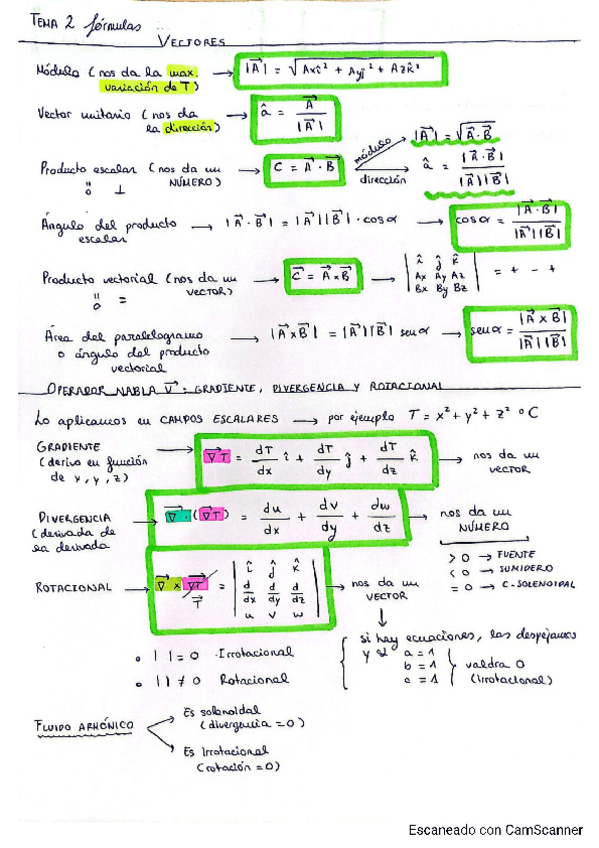 TEMA 2 fórmulas
VECTORES
Módulo (nos da la max. variación de T) → |A⃗| = √Axî² + Ayĵ² + Azk̂²
Vector unitario (nos da la dirección) → â = A⃗ / |A⃗|
Producto escalar (nos da un NÚMERO) → C = A⃗ · B⃗
" o ⊥
módulo → |A⃗| = √A⃗ · B⃗
dirección → â = |A⃗ · B⃗| / |A⃗||B⃗|
Ángulo del producto escalar → |A⃗ · B⃗| = |A⃗||B⃗| · cos α → cos α = |A⃗ · B⃗| / |A⃗||B⃗|
Producto vectorial (nos da un VECTOR) → C⃗ = A⃗ × B⃗ → | î ĵ k̂
Ax Ay Az
Bx By Bz | = + - +
" o =
Área del paralelogramo o ángulo del producto vectorial → |A⃗×B⃗| = |A⃗||B⃗| seu α → seu α = |A⃗ × B⃗| / |A⃗||B⃗|
OPERADOR NABLA ∇⃗: GRADIENTE, DIVERGENCIA Y ROTACIONAL
Lo aplicamos en CAMPOS ESCALARES → por ejemplo T = x² + y² + z² °C
GRADIENTE (derivo en función de x, y, z)
∇T = dT/dx î + dT/dy ĵ + dT/dz k̂ → nos da un VECTOR
DIVERGENCIA (derivada de la derivada
∇⃗ · (∇T) = du/dx + dv/dy + dw/dz → nos da un NÚMERO
> 0 → FUENTE
< 0 → SUMIDERO
= 0 → C-SOLENOIDAL
ROTACIONAL
∇⃗ × ∇T T⃗ = | î ĵ k̂
d/dx d/dy d/dz
u v w | → nos da un VECTOR
si hay ecuaciones, las despejamos
y si a = 1
b = 1
c = 1
valdra 0 (Irrotacional)
o | | = 0 Irrotacional
o | | ≠ 0 Rotacional
FLUIDO ARMÓNICO
Es solenoidal (divergencia = 0)
Es Irrotacional (rotación = 0)
Escaneado con CamScanner